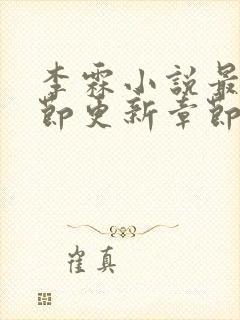 李霖小説最
節更新章節
崔真